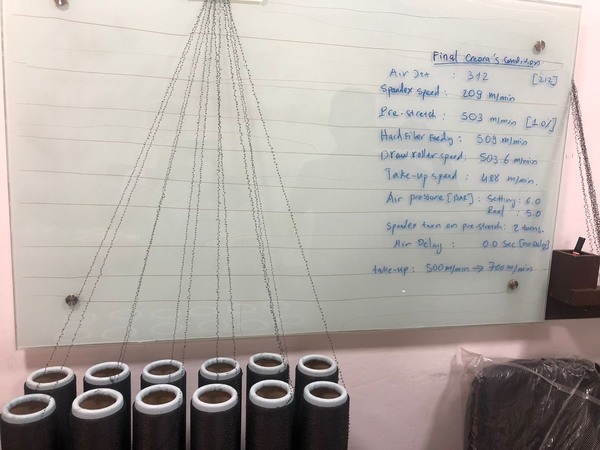 Final Creora's Condition
Air Jet : 312 [212]
Spandex speed : 209 m/min
Pre-stretch : 503 m/min [1.0%]
Hard Fiber Feedy : 509 m/min
Draw roller speed : 503.6 m/min
Take-up speed : 488 m/min.
Air pressure [BAR] : Setting : 6.0
Real : 5.0
Spandex turn on pre-stretch : 2 turns.
Air Delay : 0.0 Sec [no Delay]
take-up : 500 m/min → 700 m/min